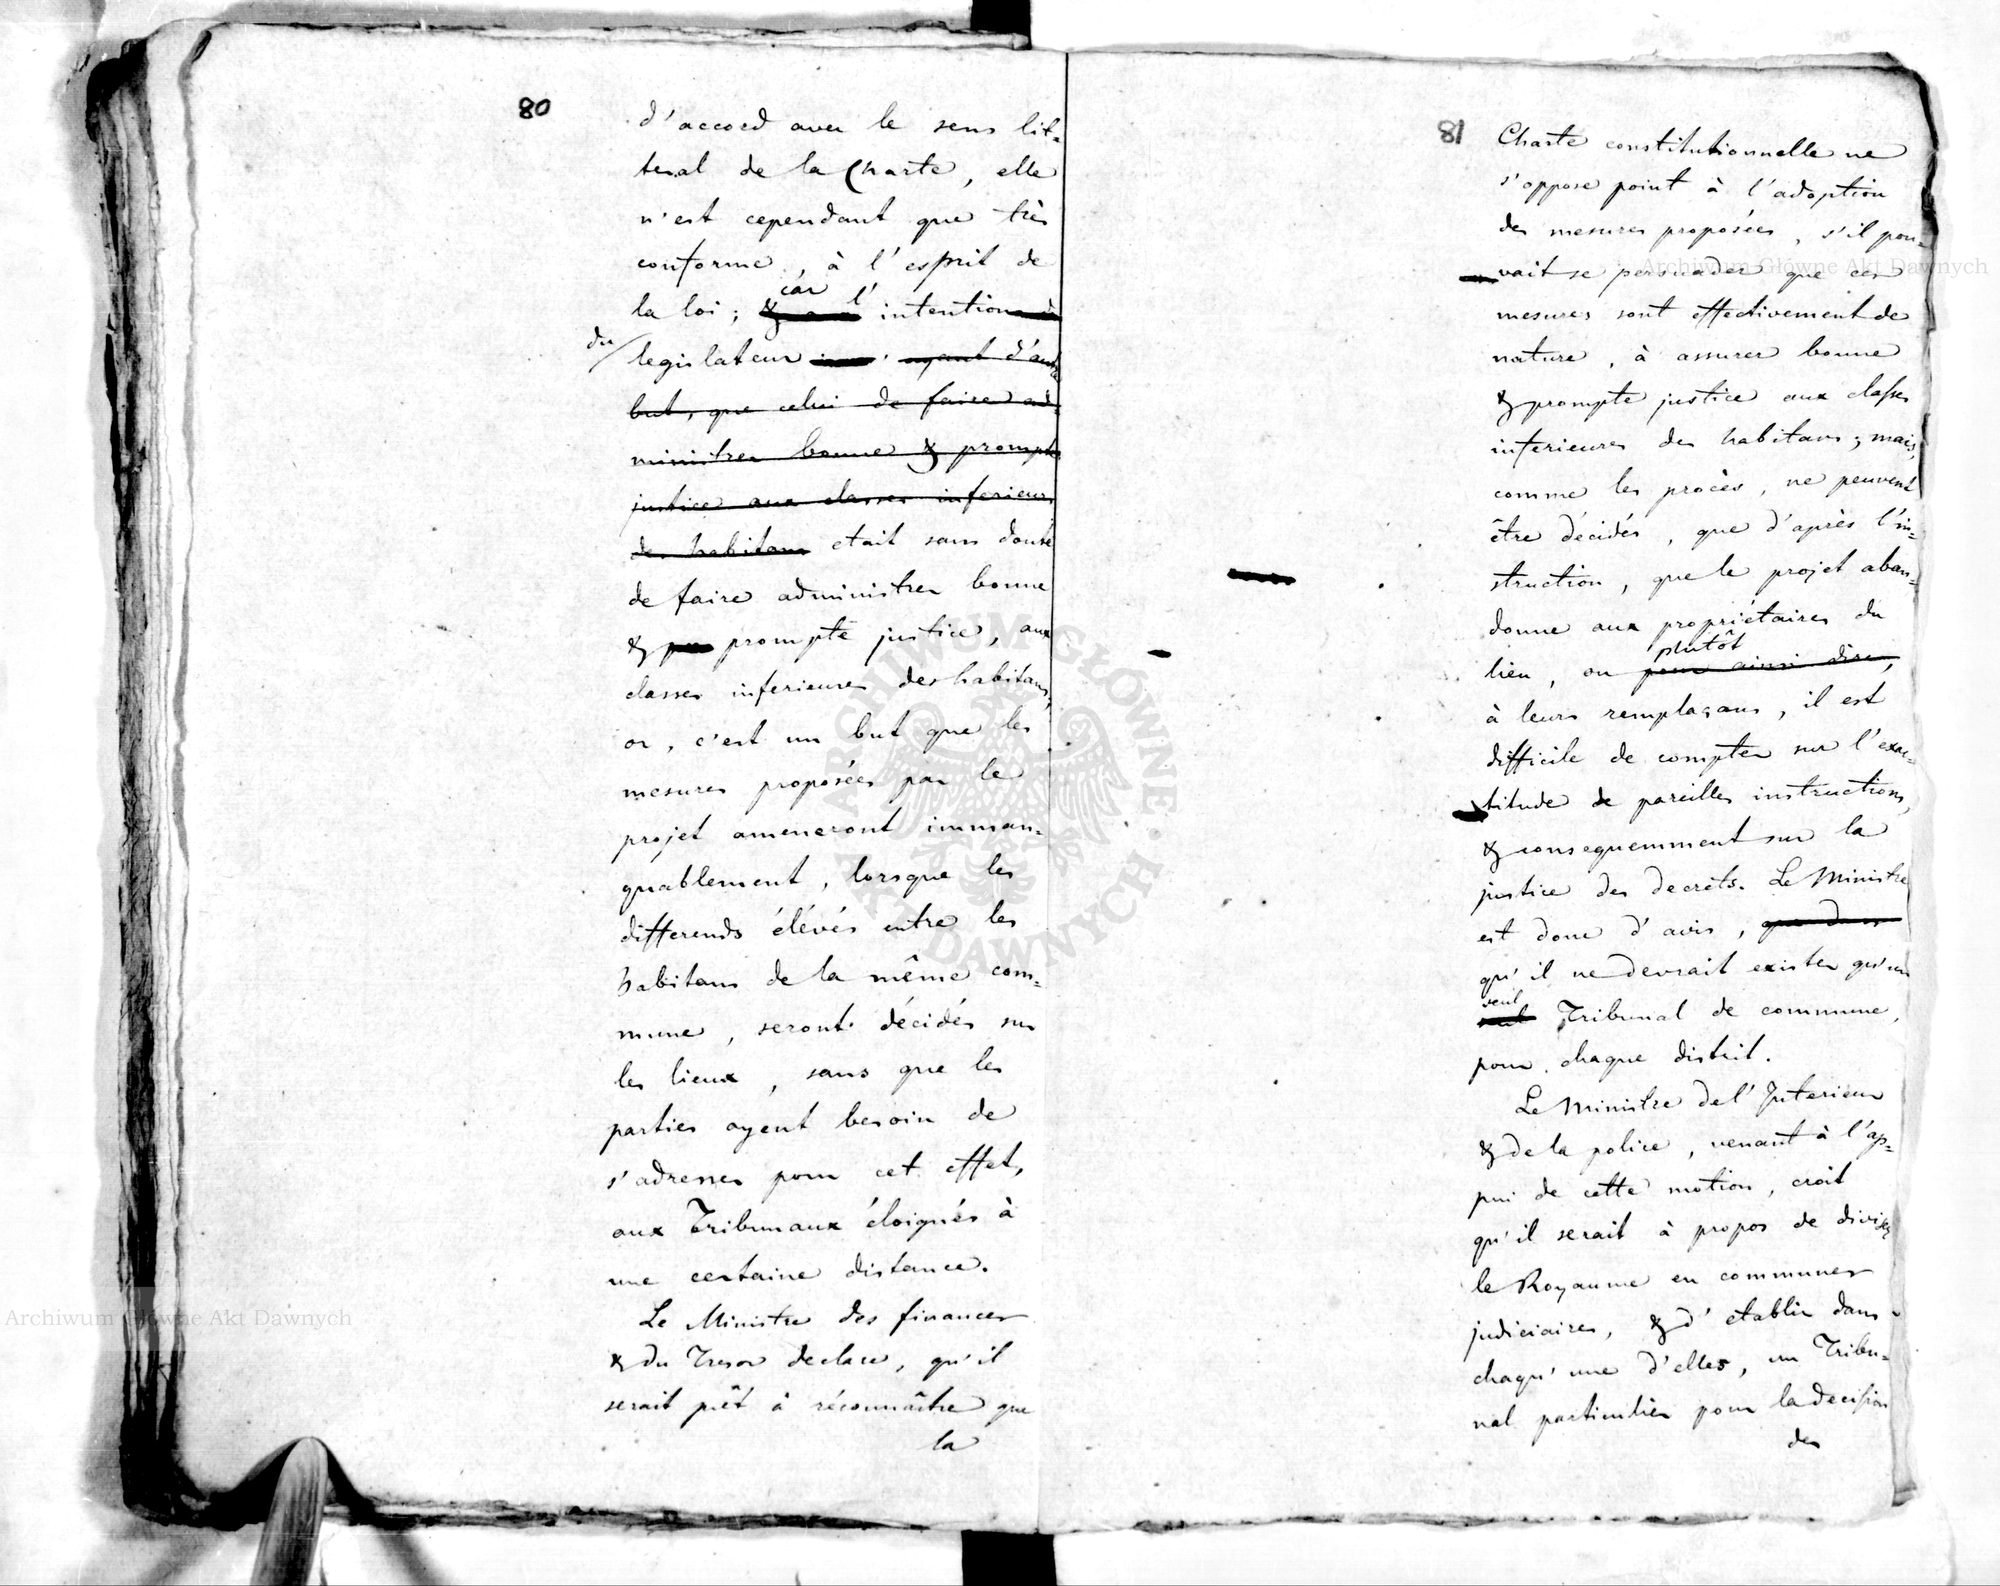 80
d'accord avec le sens lit=
teral de la Charte, elle
n'est cependant que très
conforme, à l'esprit de
car l'
la loi; & intention
du
legislateur ayant d'autre
but, que celui de faire ad=
ministrer bonne & prompte
justice aux classes inferieures
des habitans etait sans doute
de faire administrer bonne
& prompte justice, aux
classes inferieures des habitans,
or, c'est un but que les
mesures proposées par le
projet ameneront imman=
quablement, lorsque les
differends élévés entre les
habitans de la même com=
mune, seront décidés sur
les lieux, sans que les
parties ayent besoin de
s'adresser pour cet effet,
aux Tribunaux éloignés à
une certaine distance.
Le Ministre des finances
& du Tresor declare, qu'il
serait prêt à réconnâitre que
la
81
Charte constitutionnelle ne
s'oppose point à l'adoption
des mesures proposées, s'il pou=
vait se persuader que ces
mesures sont effectivement de
nature, à assurer bonne
& prompte justice aux classes
inferieures des habitans; mais,
comme les procès, ne peuvent
être décidés, que d'après l'in=
struction, que le projet aban=
donne aux propriétaires du
plutôt
lieu, ou pour ainsi dire,
à leurs remplaçans, il est
difficile de compter sur l'exac=
titude de pareilles instructions,
& consequemment sur la
justice des decrèts. Le Ministre
est donc d'avis, que dans
qu'il ne devrait exister qu'un
seul
seul Tribunal de commune,
pour chaque distrit.
Le Ministre de l'Interieur
& de la police, venant à l'ap=
pui de cette motion, croit
qu'il serait à propos de diviser
le Royaume en communes
judiciaires, & d'etablir dans
chaqu'une d'elles, un Tribu=
nal particulier pour la decision
des
Archiwum Główne Akt Dawnych
Archiwum Główne Akt Dawnych
ARCHIWUM GŁÓWNE AKT DAWNYCH